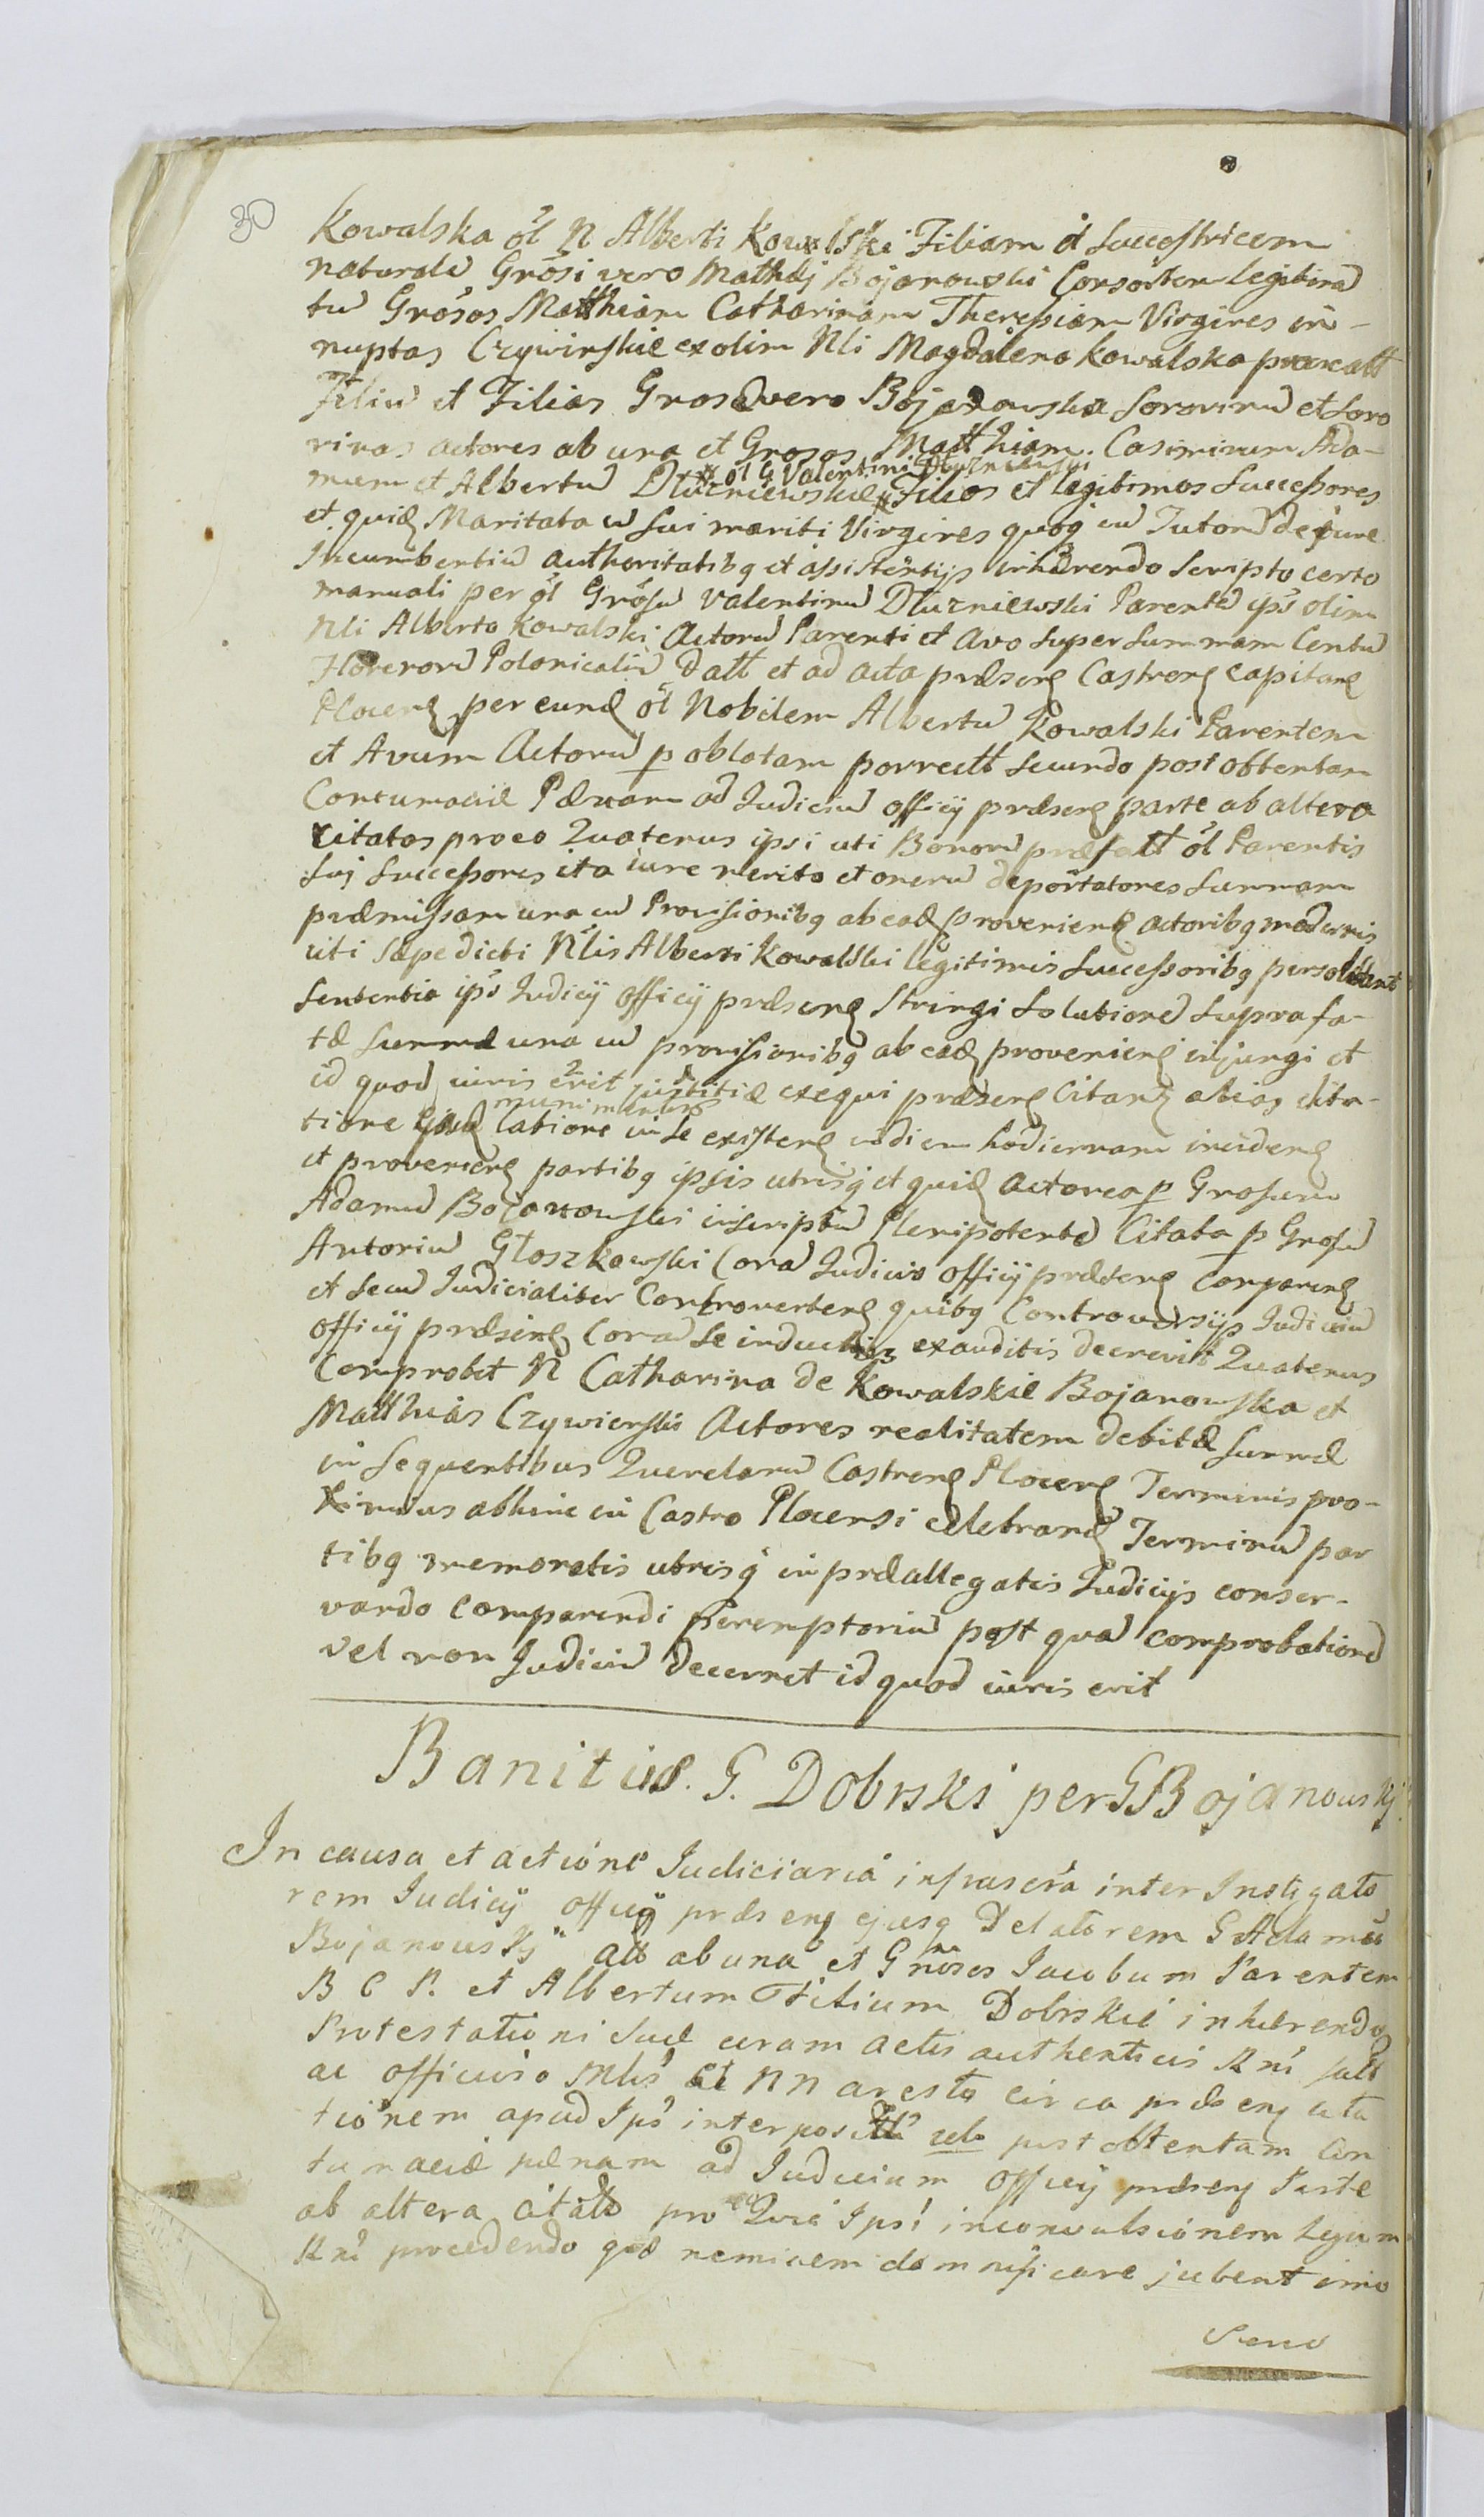 30
Kowalska ol N Alberti Kowalski Filiam et Successricem
naturale Grosi vero Mathej Bojanowski Consortem legitima
tu Grosos Matthiam Catharinam Theresiam Virgines in-
nuptas Czywinskie ex olim Nli Magdalena Kowalska procreatt
Filiu et Filias Grosae vero Bojanowska Sororinu et Soro
rinas actores ab una et Grosos Matthiam Casimirum Ada-
x ol G Valentini Dłuzniewski
mum et Albertu Dłuzniewskie x Filios et legitimos Successores
et quid Maritata cu sui mariti Virgines quoq cu Tutoru de jure
Incumbentiu authoritatibq et assistentijs inhærendo scripto certo
manuali per ol Grosu Valentinu Dłuzniewski Parente ips olim
Nli Alberto Kowalski Actoru Parenti et Avo super summam Centu
Florenoru Polonicaliu Datt et ad acta præsens Castrens Capitan
Plocens per eund ol Nobilem Albertu Kowalski Parentem
et Avum Actoru p oblatam porrectt secundo post obtentam
Contumaciæ Pænam ad Judiciu officij præsens parte ab altera
Citatos pro eo Quatenus ipsi uti Bonoru præfatt ol Parentis
sui Successores ita iure merito et oneru deportatores Summam
præmissam una cu Provisionibq ab ead provenien actoribq modernis
uti sæpe dicti Nlis Alberti Kowalski legitimis Successoribq persolvant
Sententia ips Judicij officij præsens stringi Solutione supra fa-
tæ Summæ una cu provisionibq ab ead provenien injungi et
id quod iuris erit justitiæ exequi præsens Citan alias cita-
munimentis
tione latiore in se existens in diem hodiernam inciden
et provenien partibq ipsis utrisq et quid Actorea p Grosum
Adamu Bojanowski inscriptu Plenipotente Citata p Grosu
Antoniu Głoszkowski Cora Judicio officij præsens comparen
et secu Judicialiter Controverten quibq Controversijs Judiciu
officij præsens Cora se inductis exauditis decrevit Quatenus
Comprobet N Catharina de Kowalskie Bojanowska et
Matthias Czywienski Actores realitatem debitæ Summæ
in sequentibus Querelaru Castrens Plocens Terminis pro-
ximius abhinc in Castro Plocensi celebran Terminu par
tibq memoratis utrisq in præallegatis Judicijs conser-
vando comparendi peremptoriu post qua comprobatione
vel non Judiciu decernet id quod iuris erit
Banitus. G. Dobrski per G Bojanowskj
In causa et actione Judiciaria infrascra inter Instygato
rem Judicij officij præsens ejusq Delatorem G Adamu
Bojanowskj att ab una et Gnosos Jacobum Parentem
B C P. et Albertum Filium Dobrskie inhærendo
Protestationi suæ coram actis authenticis Rni fatt
ac officioso Mlis et NN aresto circa præsens cita
tionem apud Ips interpositt post obtentam Con
tumaciæ pænam ad Judicium officij præsens Parte
ab altera citatt pro eo Quia Ipsi in convulsionem Legum
Rni procedendo quæ neminem damnificare jubent imo